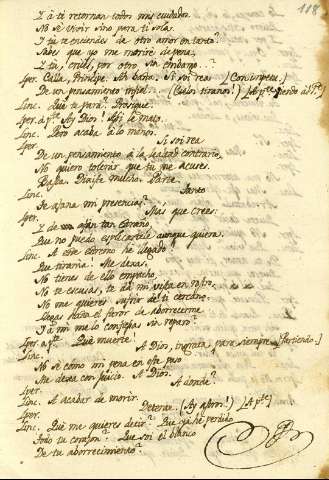 118
Y á ti retornan todos mis cuidados.
No sé vivir sino para ti sola.
Y tu te enciendes de otro amor en tanto?
Sabes que yo me moriré de pena,
Y tu, cruel, por otro sin embargo..?
Iper. Calla, Principe. Ah basta. Si soi rea (Con impetu.)
De un pensamiento infiel.. (Cielos tiranos!) (Ap.te
Linc. Que tu pura? Prosigue.
Iper. ap.te Ay Dios! Asi le mato.
Linc. Pero acaba á lo menos.
Iper. Si soi rea
De un pensamiento á la lealtad contrario,
No quiero tolerar que tu me acuses.
Basta. Dixite mucho. Parte.
Linc. Tanto
Te afana mi presencia?
Iper. Mas que crees:
Y de un afán tan estraño,
Que no puedo esplicartele aunque quiera.
Linc. A este estremo he llegado?
Que tirania! Me dexas.
No tienes de ello empacho,
No te escusas, te da mi vista enfado,
No me quieres sufrir de ti cercano,
Llegas hasta el furor de aborrecerme
Y á mi me lo confiesas sin reparo?
Iper. ap.te Que muerte!
Linc. A Dios, ingrata, para siempre. (Partiendo.)
No sé como mi pena en este paso
Me dexa con juicio. A Dios.
Iper. A donde?
Linc. A acabar de morir.
Iper. Detente. (Ay astros!) (Ap.te)
Linc. Qué me quieres decir? Que ya he perdido
Todo tu corazon? Que soi el blanco
De tu aborrecimiento?